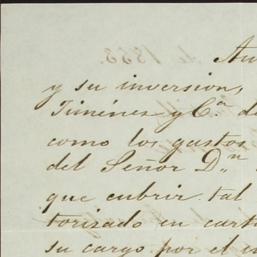 y su inversion,
Jiménez y Cª. de
como los gastos
del Señor Dn.
que cubrir tal
torisado en cart
su cargo por el